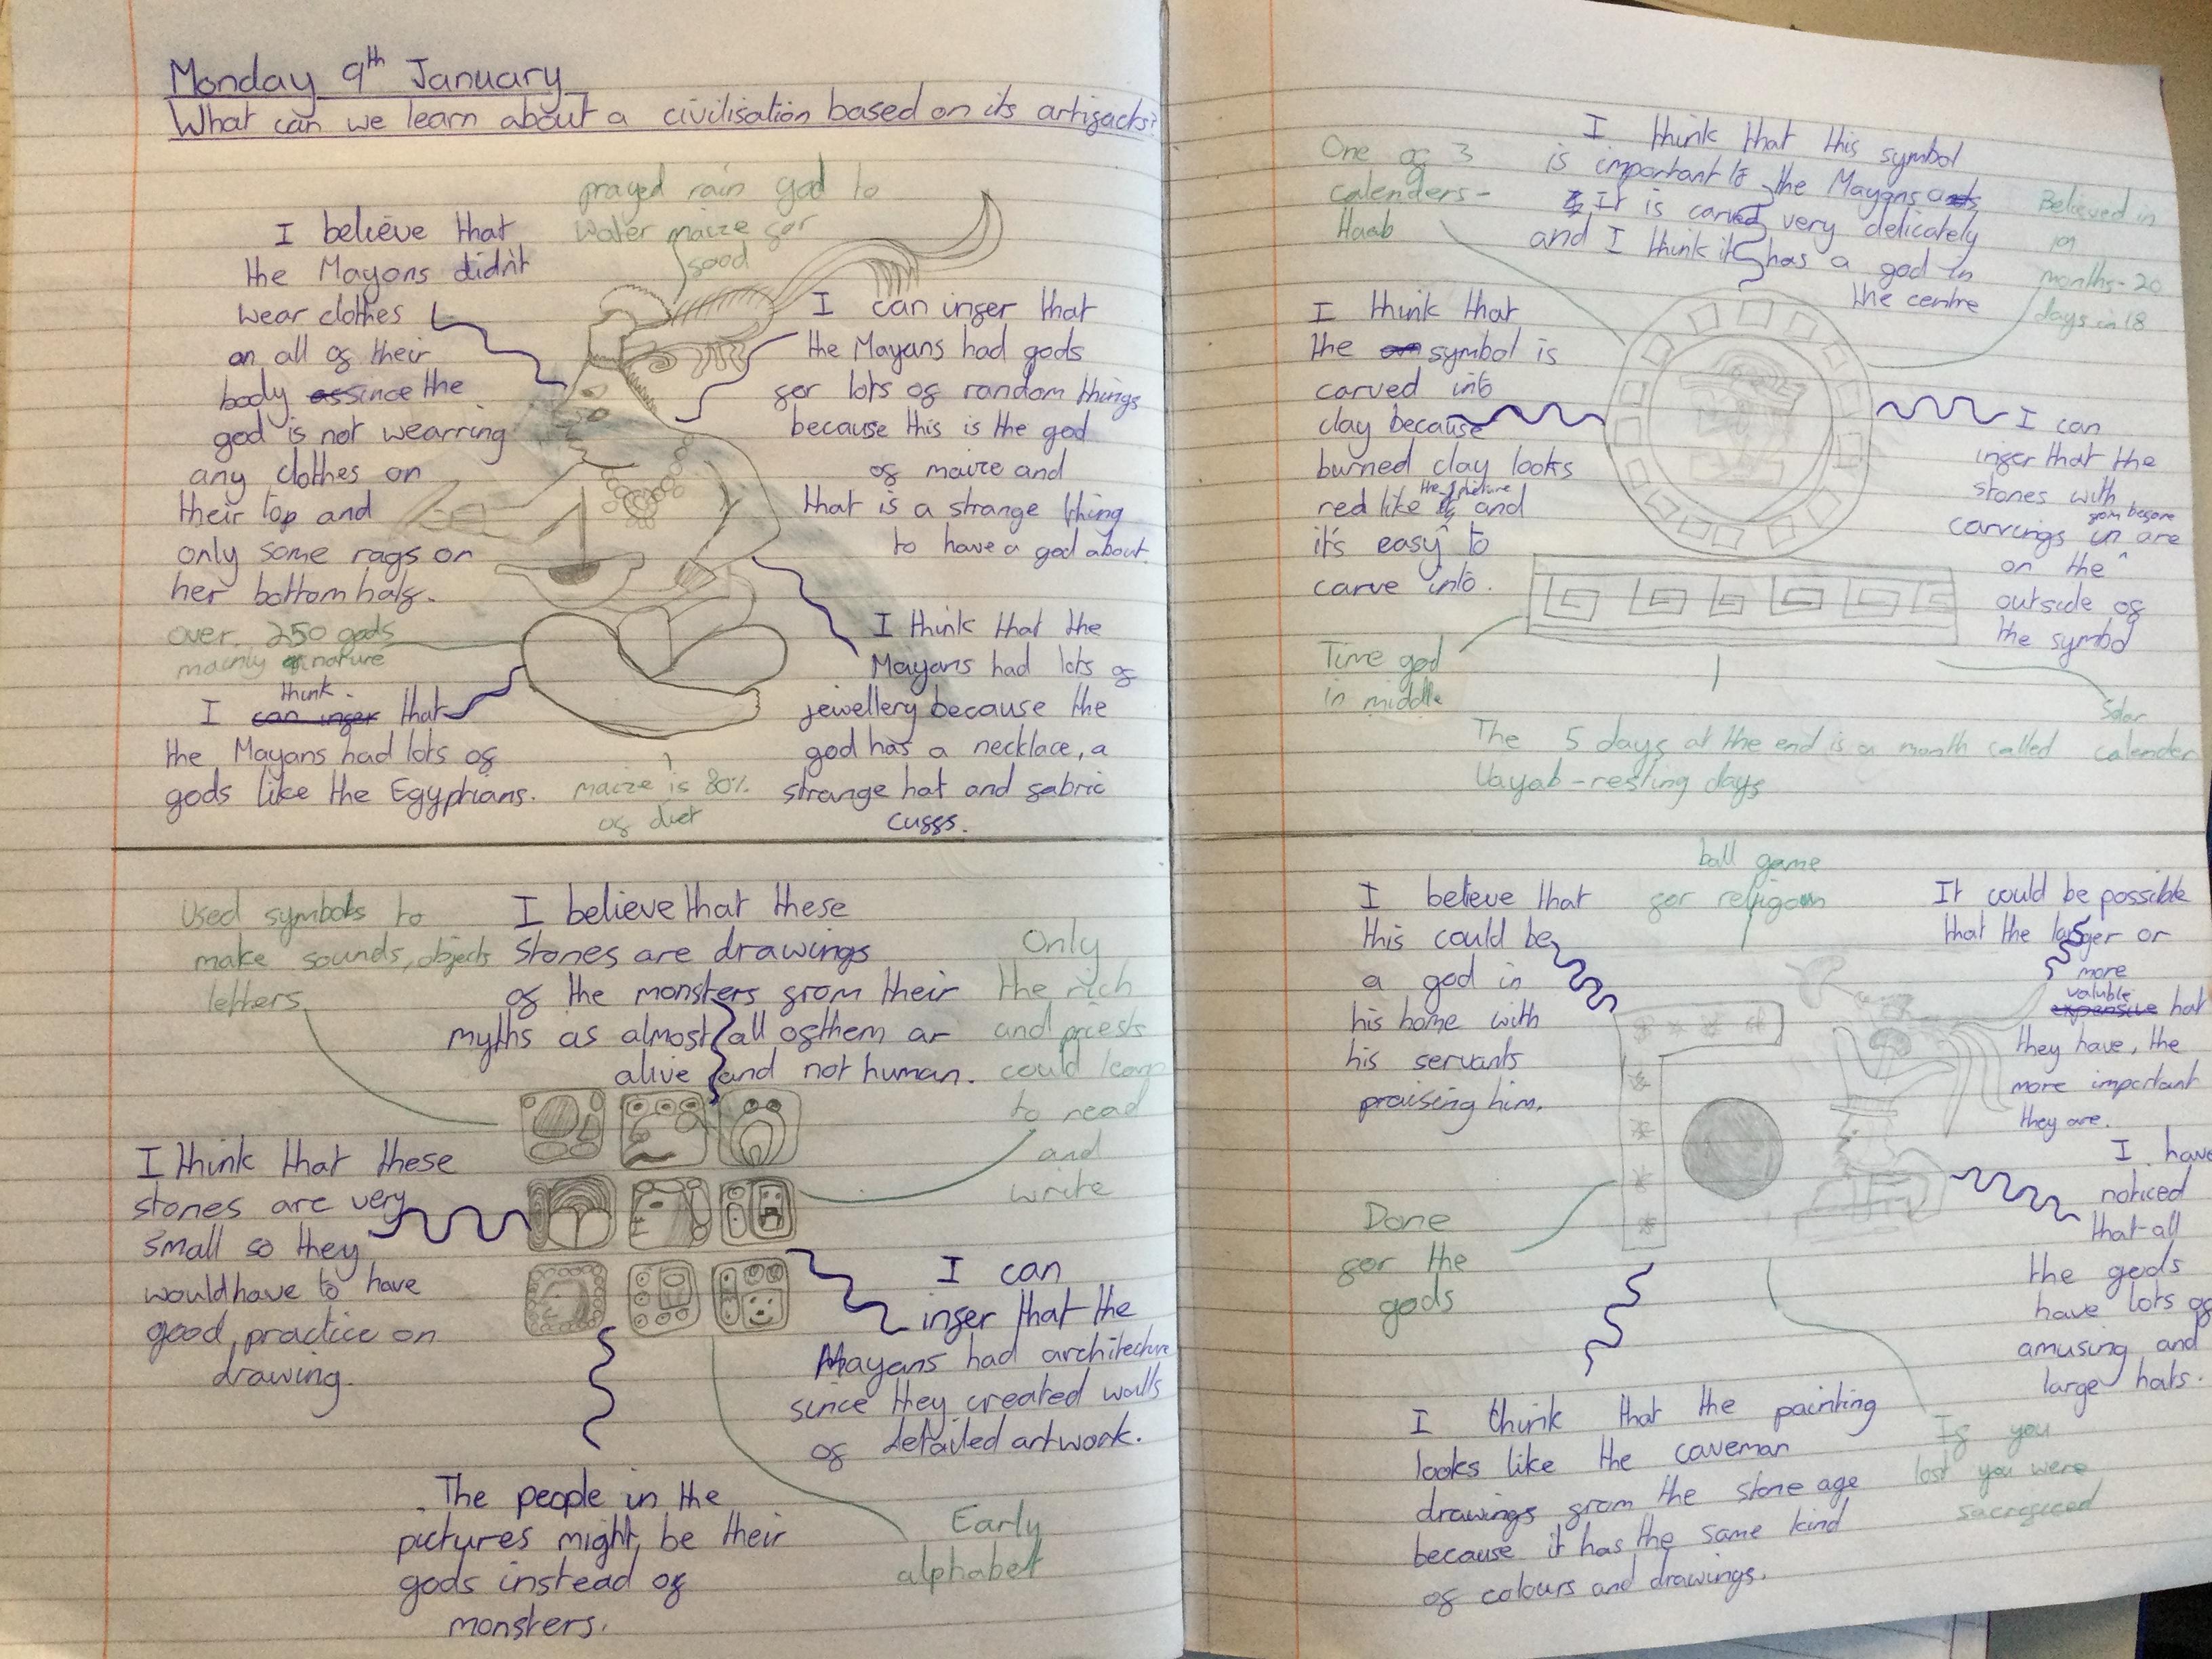 Monday 9th January
What can we learn about a civilisation based on its artifacts?
prayed rain god to
water maize for
food
I believe that
the Mayans didn't
wear clothes
on all of their
body as since the
god is not wearring
any clothes on
their top and
only some rags on
her bottom half.
I can infer that
the Mayans had gods
for lots of random things
because this is the god
of maize and
that is a strange thing
to have a god about.
over 250 gods
mainly of nature
think
I can infer that
the Mayans had lots of
gods like the Egyptians.
maize is 80%
of diet
I think that the
Mayans had lots of
jewellery because the
god has a necklace, a
strange hat and fabric
cuffs.
Used symbols to
make sounds, objects
letters
I believe that these
stones are drawings
of the monsters from their
myths as almost all of them ar
alive and not human.
Only
the rich
and priests
could learn
to read
and
write
I think that these
stones are very
small so they
would have to have
good practice on
drawing.
I can
infer that the
Mayans had architecture
since they created walls
of detailed artwork.
The people in the
pictures might be their
gods instead of
monsters.
Early
alphabet
One of 3
calenders-
Haab
I think that this symbol
is important to the Mayans as
It is carved very delicately
and I think it has a god in
the centre
Believed in
19
months-20
days in 18
I think that
the symbol is
carved into
clay because
burned clay looks
the picture
red like and
it's easy to
carve into.
I can
infer that the
stones with
from before
carvings in are
on the
outside of
the symbol
Time god
in middle
Solar
calender
The 5 days at the end is a month called
Uayab-resting days
ball game
for religion
I believe that
this could be
a god in
his home with
his servants
praising him.
It could be possible
that the larger or
more
valuble
expensive hat
they have, the
more important
they are.
Done
for the
gods
I have
noticed
that all
the gods
have lots of
amusing and
large hats.
I think that the painting
looks like the caveman
drawings from the stone age
because it has the same kind
of colours and drawings.
If you
lost you were
sacrificed